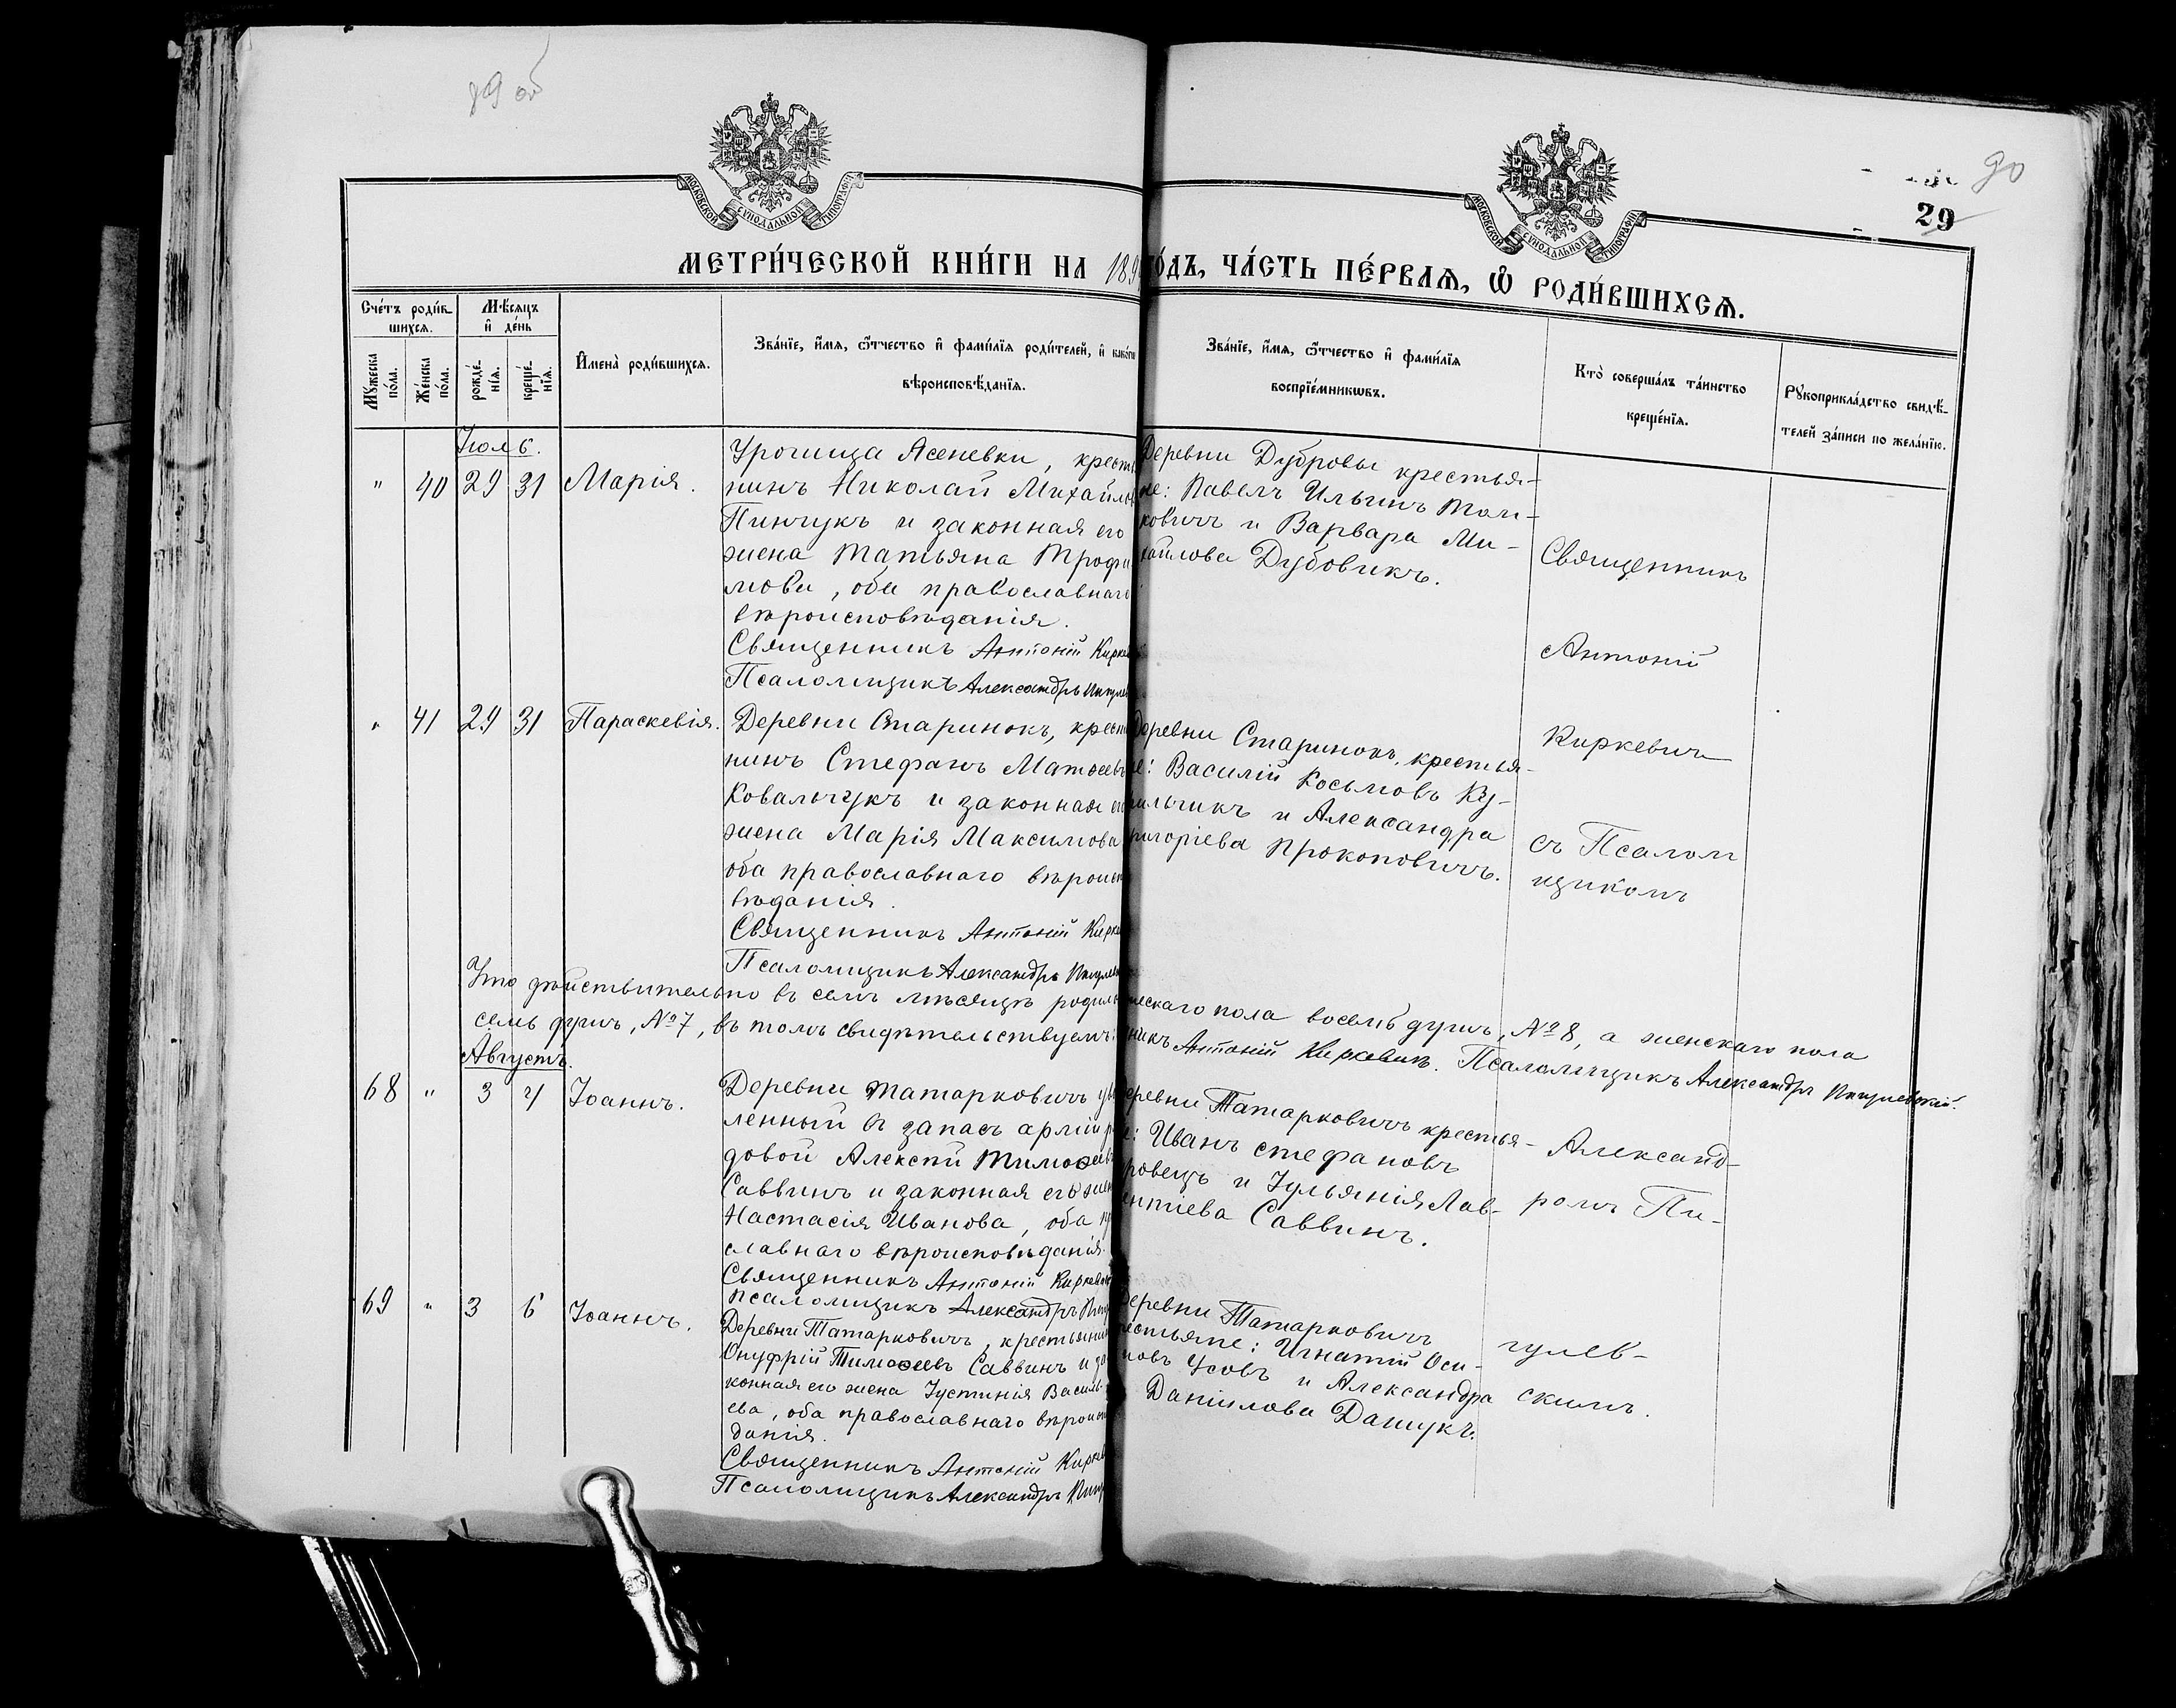 89 об
90
29
МОСКОВСКОЙ СѴНОДАЛЬНОЙ ТИПОГРАФІИ
МОСКОВСКОЙ СѴНОДАЛЬНОЙ ТИПОГРАФІИ
МЕТРИ́ЧЕСКОЙ КНИ́ГИ НА 189 ГО́ДЪ, ЧА́СТЬ ПЕ́РВАѦ, Ѡ҆ РОДИ́ВШИХСѦ.
Сче́тъ роди́в-
шихсѧ.
Мꙋ́жеска по́ла.
Же́нска по́ла.
Мѣ́сѧцъ
и҆ де́нь
рожде́-
нїѧ.
креще́-
нїѧ.
И҆мена̀ роди́вшихсѧ.
Зва́нїе, и҆́мѧ, ѻ҆́тчество и҆ фами́лїѧ роди́телей, и҆ како́гѡ
вѣроисповѣ́данїѧ.
Зва́нїе, и҆́мѧ, ѻ҆́тчество и҆ фами́лїѧ
воспрїе́мникѡвъ.
Кто̀ соверша́лъ та́инство
креще́нїѧ.
Рꙋкоприкла́дство свидѣ́-
телей за́писи по жела́нїю.
Іюль.
" 40 29 31 Марія.
Урочища Ясеневки, крестья
нинъ Николай Михайлов
Пинчукъ и законная его
жена Татьяна Трофи
мова, оба православнаго
вѣроисповѣданія.
Священникъ Антоній Кирке
Псаломщикъ Александръ Пигулев
Деревни Дубровы крестья-
не: Павелъ Ильинъ Том-
ковичъ и Варвара Ми-
хайлова Дубовикъ.
" 41 29 31 Параскевія.
Деревни Старинокъ, крестья
нинъ Стефанъ Матѳеевъ
Ковальчукъ и законная его
жена Марія Максимова
оба православнаго вѣроиспо
вѣданія.
Священникъ Антоній Кирке
Псаломщикъ Александръ Пигулев
Деревни Старинокъ, крестья-
не: Василій Косьмовъ Ку-
ильчикъ и Александра
ригоріева Прокоповичъ.
Что дѣйствительно въ семъ мѣсяцѣ родилось ческаго пола восемь душъ, №8, а женскаго пола
семь душъ, №7, въ томъ свидѣтельствуемъ: никъ Антоній Киркевичъ. Псаломщикъ Александръ Пигулевскій.
Августъ.
68 " 3 4 Іоаннъ.
Деревни Татарковичъ ув
ленный въ запасъ арміи р
довой Алексѣй Тимоѳеевъ
Саввинъ и законная его жена
Настасія Иванова, оба пр
славнаго вѣроисповѣданія.
Священникъ Антоній Киркевич
Псаломщикъ Александръ Пигу
еревни Татарковичъ крестья-
е: Иванъ Стефановъ
ровецъ и Іульянія Лав-
ентіева Саввинъ.
69 " 3 6 Іоаннъ.
Деревни Татарковичъ, крестьянинъ
Онуфрій Тимоѳеевъ Саввинъ и за
конная его жена Іустинія Василь-
ева, оба православнаго вѣроиспо
данія.
Священникъ Антоній Кирке
Псаломщикъ Александръ Пигу
Деревни Татарковичъ
рестьяне: Игнатій Оси-
повъ Усовъ и Александра
Даніилова Дашукъ.
Священникъ
Антоній
Киркевичъ
съ Псалом
щикомъ
Александ-
ромъ Пи-
гулев-
скимъ.